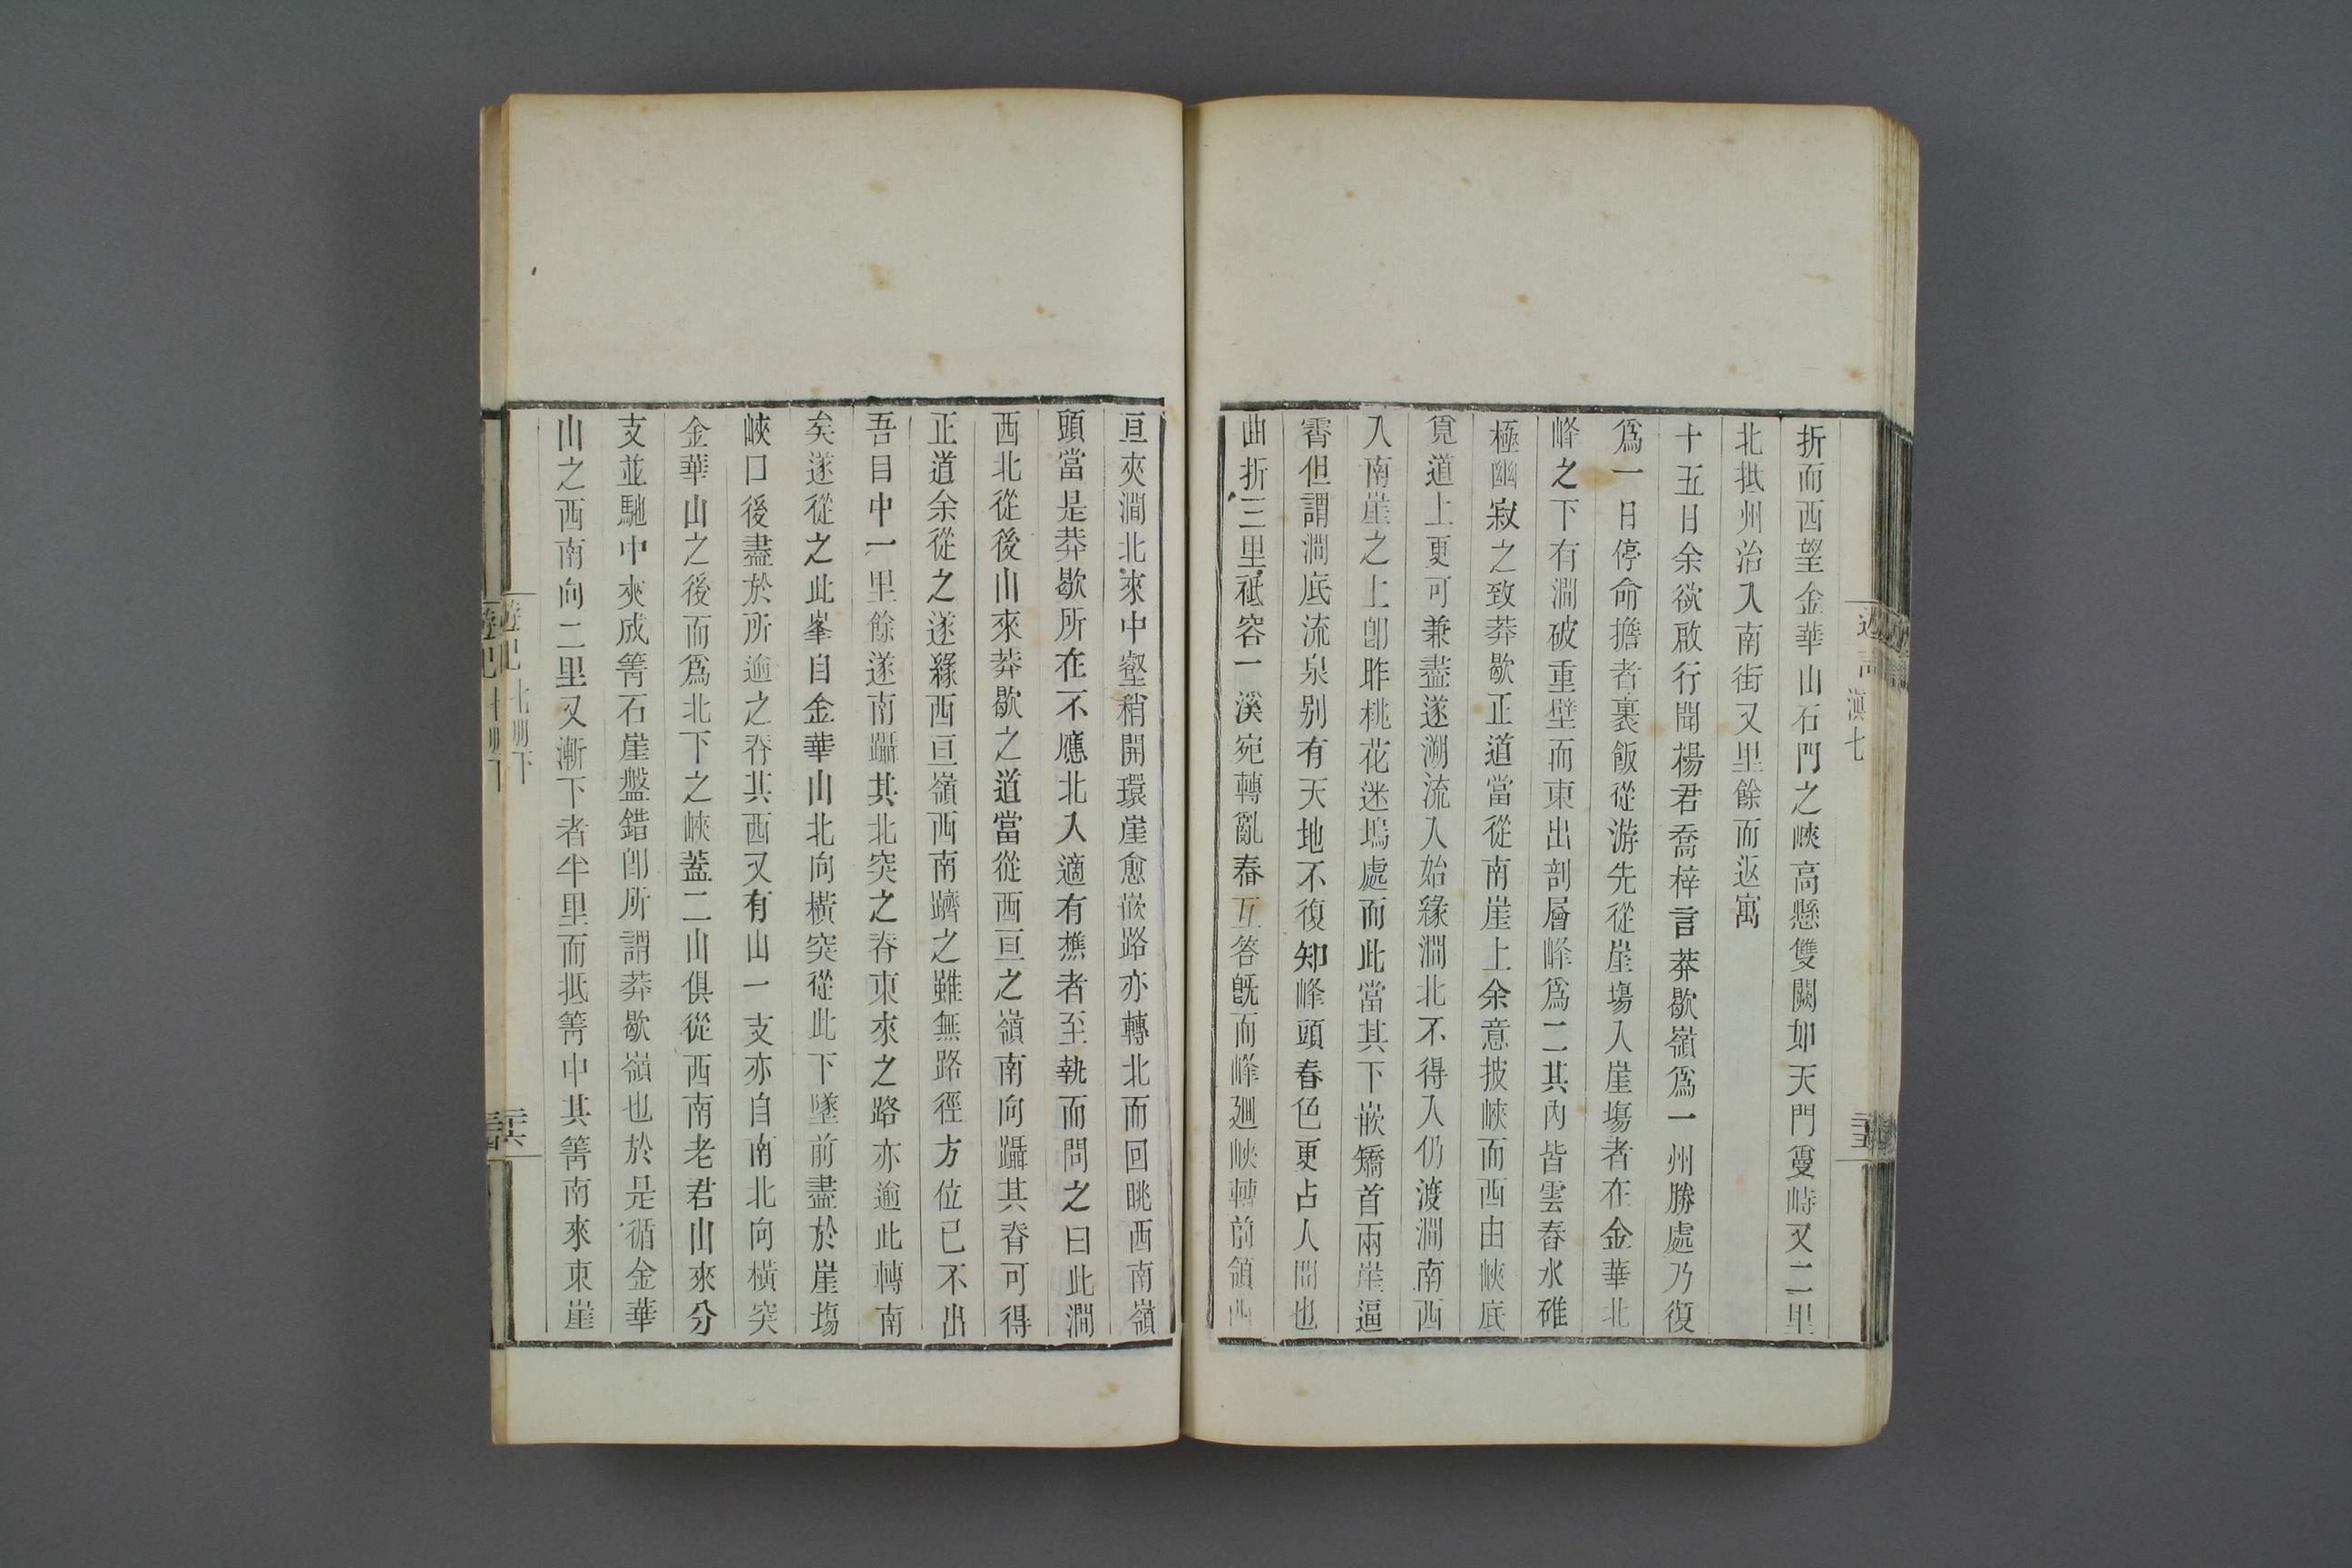 折而西望金華山石門之峽高懸雙闕如天門夐峙又二里
北抵州治入南街又里餘而返寓
十五日余欲啟行聞楊君喬梓言莽歇嶺爲一州勝處乃復
爲一日停命擔者裹飯從游先從崖塲入崖塲者在金華北
峰之下有澗破重壁而東出剖層峰爲二其內皆雲舂水碓
極幽寂之致莽歇正道當從南崖上余意披峽而西由峽底
覓道上更可兼盡遂溯流入始緣澗北不得入仍渡澗南西
入南崖之上卽昨桃花迷塢處而此當其下嵌矯首兩崖逼
霄但謂澗底流泉别有天地不復知峰頭春色更占人間也
曲折三里祗容一溪宛轉亂舂互答旣而峰廻峽轉前嶺西
亘夾澗北來中壑稍開環崖愈嵌路亦轉北而回眺西南嶺
頭當是莽歇所在不應北入適有樵者至執而問之曰此澗
西北從後山來莽歇之道當從西亘之嶺南向躡其脊可得
正道余從之遂緣西亘嶺西南躋之雖無路徑方位已不出
吾目中一里餘遂南躡其北突之脊東來之路亦逾此轉南
矣遂從之此峯自金華山北向橫突從此下墜前盡於崖塲
峽口後盡於所逾之脊其西又有山一支亦自南北向橫突
金華山之後而爲北下之峽蓋二山俱從西南老君山來分
支並馳中夾成箐石崖盤錯卽所謂莽歇嶺也於是循金華
山之西南向二里又漸下者半里而抵箐中其箐南來東崖
滇七
遊記
七冊下